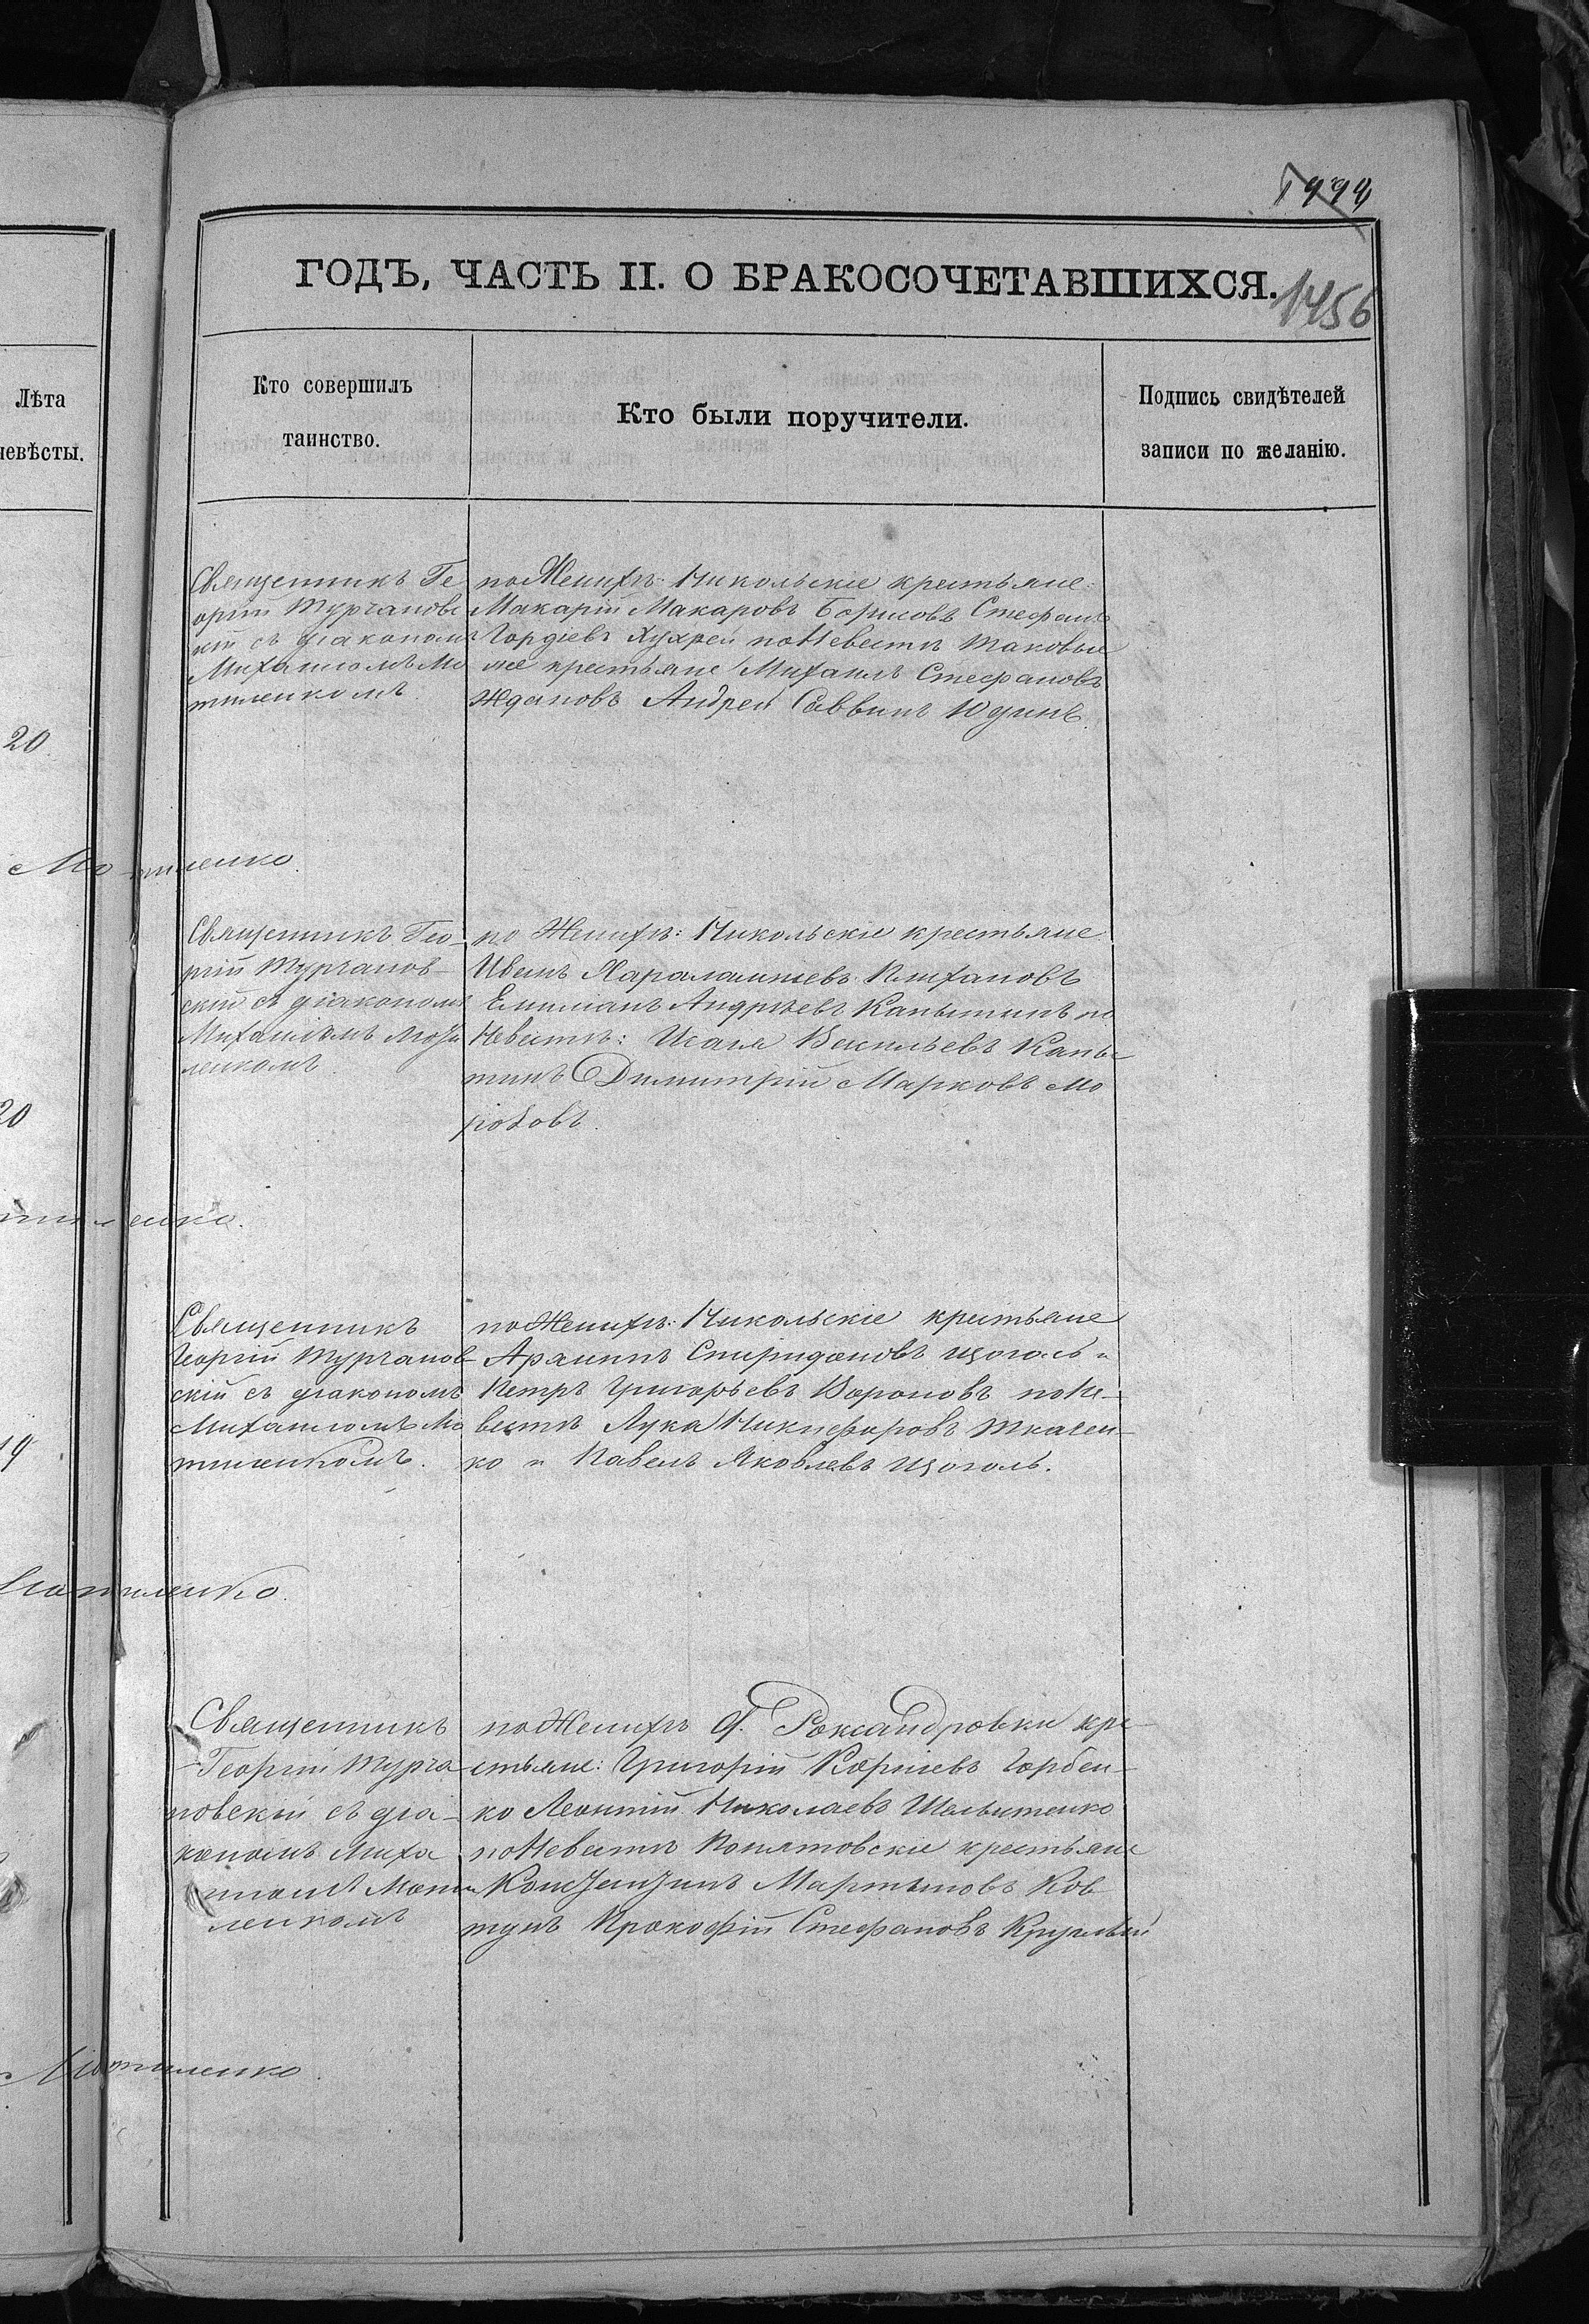 1994
ГОДЪ, ЧАСТЬ II. О БРАКОСОЧЕТАВШИХСЯ.
1456
Лѣта
невѣсты.
Кто совершилъ
таинство.
Кто были поручители.
Подпись свидѣтелей
записи по желанію.
Священникъ Ге
оргій Турчановс
кій съ діакономъ
Михаиломъ Мо
тиленкомъ
по Женихѣ: Никольскіе крестьяне:
Макарій Макаровъ Борисовъ Стефанъ
Гордіевъ Кухрей по Невестѣ таковые
же крестьяне Михаилъ Стефановъ
Ждановъ Андрей Саввинъ Юдинъ.
20
Мотиленко.
Священникъ Гео-
ргій Турчанов-
скій съ діакономъ
Михаиломъ Моти
ленкомъ
по Женихѣ: Никольскіе крестьяне
Иванъ Харалампіевъ Плихановъ
Емиліанъ Андрѣевъ Капытинъ по
Невестѣ: Исаія Васильевъ Капы
тинъ Димитрій Марковъ Мо
розовъ.
20
тиленко.
Священникъ
Георгій Турчанов-
скій съ діакономъ
Михаиломъ Мо
тиленкомъ.
по Женихѣ: Никольскіе крестьяне
Архипъ Спиридоновъ Щоголь и
Петръ Григорьевъ Вороновъ по Не-
вестѣ Лука Никифоровъ Ткачен-
ко и Павелъ Яковлевъ Щоголь.
19
Мотиленко.
Священникъ
Георгій Турча-
новскій съ діа-
кономъ Миха
иломъ Моти
ленкомъ
по Женихѣ д. Роксандровки кре-
стьяне: Григорій Корніевъ Горбен-
ко Леонтій Николаевъ Шелытенко
по Невестѣ Понятовскіе крестьяне
Константинъ Мартыновъ Ков
тунъ Прокофій Стефановъ Круглый
Мотиленко.